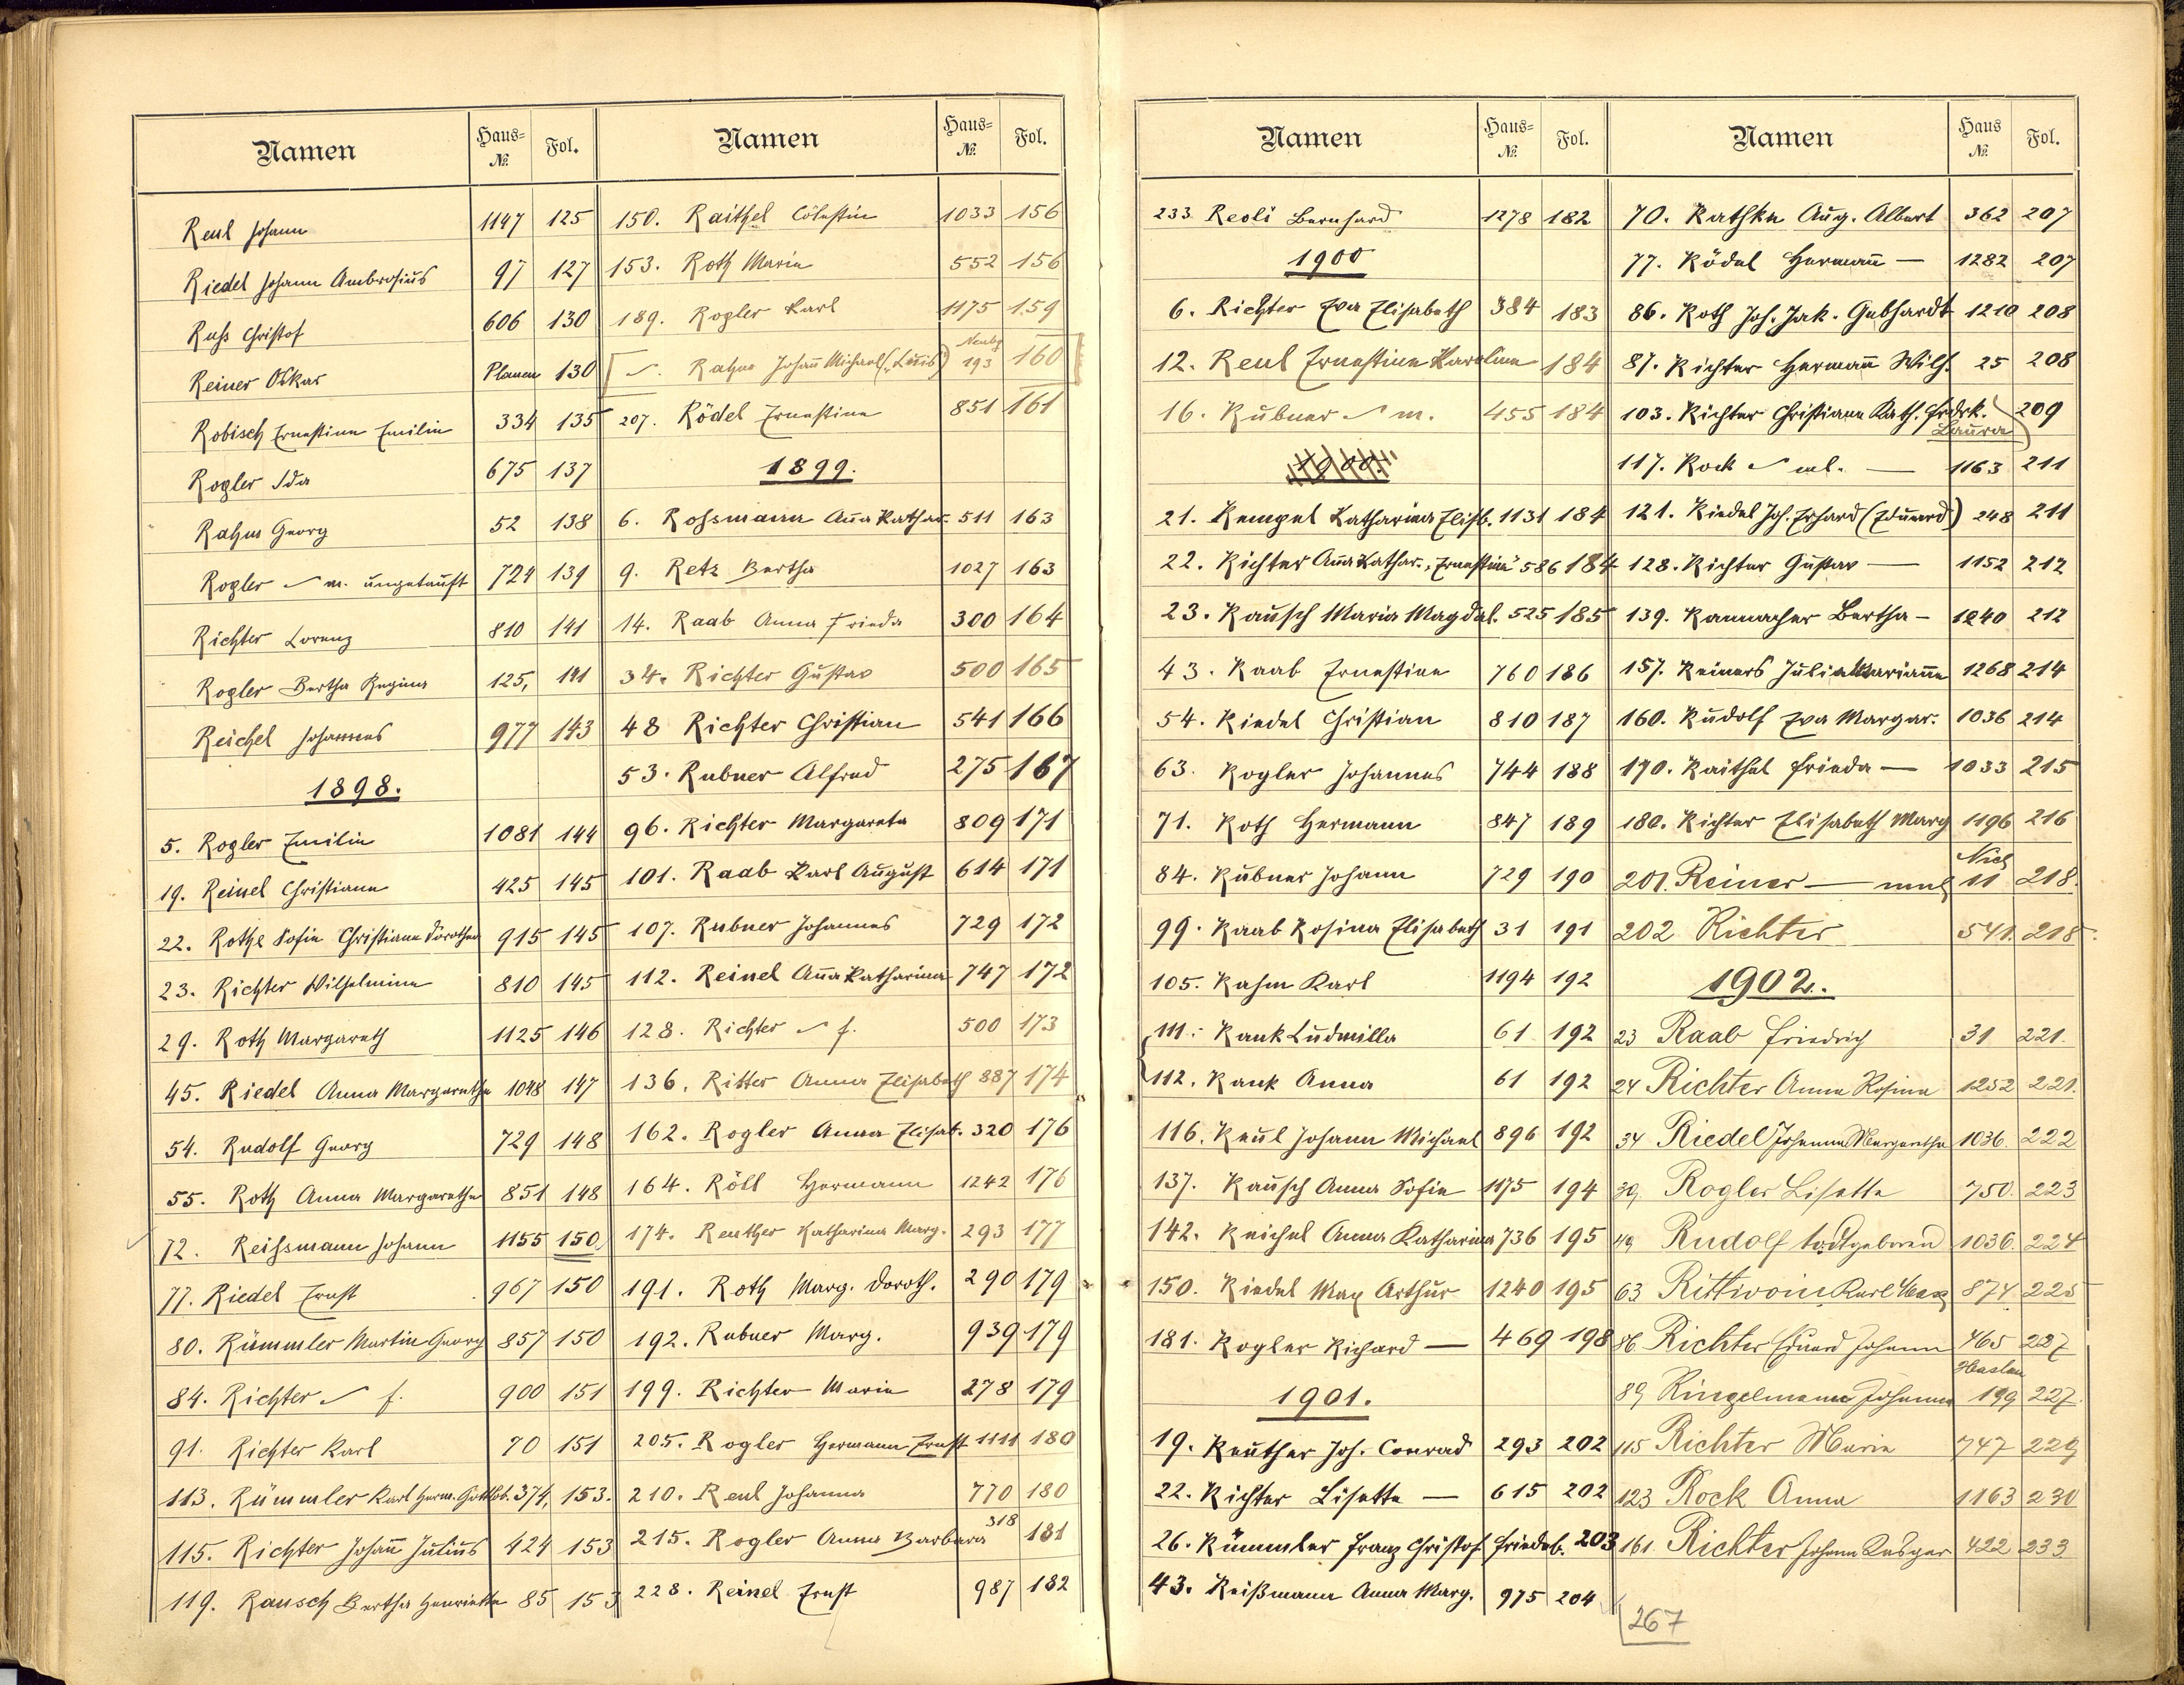 Namen Haus-№ Fol.
Reul Johann 1147 125
Riedel Johann Ambrosius 97 127
Ruß Christof 606 130
Reiner Oskar Planen 130
Robisch Ernestine Emilie 334 135
Rogler Ida 675 137
Rahm Georg 52 138
Rogler m. ungetauft 724 139
Richter Lorenz 810 141
Rogler Bertha Regina 125, 141
Reichel Johannes 977 143
1898.
5. Rogler Emilie 1081 144
19. Reinel Christiane 425 145
22. Rothe Sofie Christiane Dorothea 915 145
23. Richter Wilhelmine 810 145
29. Roth Margareth 1125 146
45. Riedel Anna Margarethe 1048 147
54. Rudolf Georg 729 148
55. Roth Anna Margaretha 851 148
72. Reißmann Johann 1155 150
77. Riedel Ernst 967 150
80. Rümmler Martin Georg 857 150
84. Richter f. 900 151
91. Richter Karl 70 151
113. Rümmler Karl Herm. Gottlob. 374, 153.
115. Richter Johañ Julius 424 153
119. Rausch Bertha Henriette 85 153
Namen Haus-№ Fol.
150. Raithel Cölestin 1033 156
153. Roth Maria 552 156
189. Rogler Karl 1175 159
Rahm Johañ Michael („Louis“) Neubg 193 160
207. Rödel Ernestine 851 161
1899.
6. Roßmann Aña Kathar. 511 163
9. Retz Bertha 1027 163
14. Raab Anna Frieda 300 164
34. Richter Gustav 500 165
48 Richter Christian 541 166
53. Rubner Alfred 275 167
96. Richter Margareta 809 171
101. Raab Karl August 614 171
107. Rubner Johannes 729 172
112. Reinel Aña Katharina 747 172
128. Richter f. 500 173
136. Ritter Anna Elisabeth 887 174
162. Rogler Anna Elisab. 320 176
164. Röll Hermann 1242 176
174. Reuther Katharina Marg. 293 177
191. Roth Marg. Doroth. 290 179
192. Rubner Marg. 939 179
199. Richter Marie 278 179
205. Rogler Hermann Ernst 1111 180
210. Reul Johanna 770 180
215. Rogler Anna Barbara 318 181
228. Reinel Ernst 987 182
Namen Haus-№ Fol.
233 Reoli Bernhard 1278 182
1900
6. Richter Eva Elisabeth 384 183
12. Reul Ernestine Karoline 184
16. Rubner m. 455 184
1900.
21. Rempel Katharina Elisb. 1131 184
22. Richter Aña Kathar. „Ernestine“ 586 184
23. Rausch Maria Magdal. 525 185
43. Raab Ernestine 760 186
54. Riedel Christian 810 187
63. Rogler Johannes 744 188
71. Roth Hermann 847 189
84. Rubner Johann 729 190
99. Raab Rosina Elisabeth 31 191
105. Rahm Karl 1194 192
111. Rank Ludmilla 61 192
112. Rank Anna 61 192
116. Reul Johann Michael 896 192
137. Rausch Anna Sofie 1175 194
142. Reichel Anna Katharina 736 195
150. Riedel Max Arthur 1240 195
181. Rogler Richard — 469 198
1901.
19. Reuther Joh. Conrad 293 202
22. Richter Lisette — 615 202
26. Rümmler Franz Christof Friedeb. 203
43. Reißmann Anna Marg. 975 204
Namen Haus № Fol.
70. Rathke Aug. Albert 362 207
77. Rödel Hermañ — 1282 207
86. Roth Joh. Jak. Gebhardt 1210 208
87. Richter Hermañ Wilh. 25 208
103. Richter Christiane Kath. Frdrk. 209
Laura
117. Rock wl. — 1163 211
121. Riedel Joh. Erhard (Eduard) 248 211
128. Richter Gustav — 1152 212
139. Rammacher Bertha — 1240 212
157. Reiners Julie Mariañe 1268 214
160. Rudolf Eva Margar. 1036 214
170. Raithel Frieda — 1033 215
180. Richter Elisabeth Marg 1196 216
201. Reiner — 11 218.
202 Richter 541. 218.
1902.
23 Raab Friedrich 31 221.
24 Richter Anna Rosina 1252 221.
34 Riedel Johanna Margaretha 1036. 222
39. Rogler Lisette 750. 223
49 Rudolf todtgeboren 1036. 224
63 Rittwoin Karl Max 874 225
86 Richter Eduard Johann 465 227
89 Ringelmann Johanna Haslau 199 227.
115 Richter Maria 747 229
123 Rock Anna 1163 230
161. Richter Johann Kaspar 422 233
267